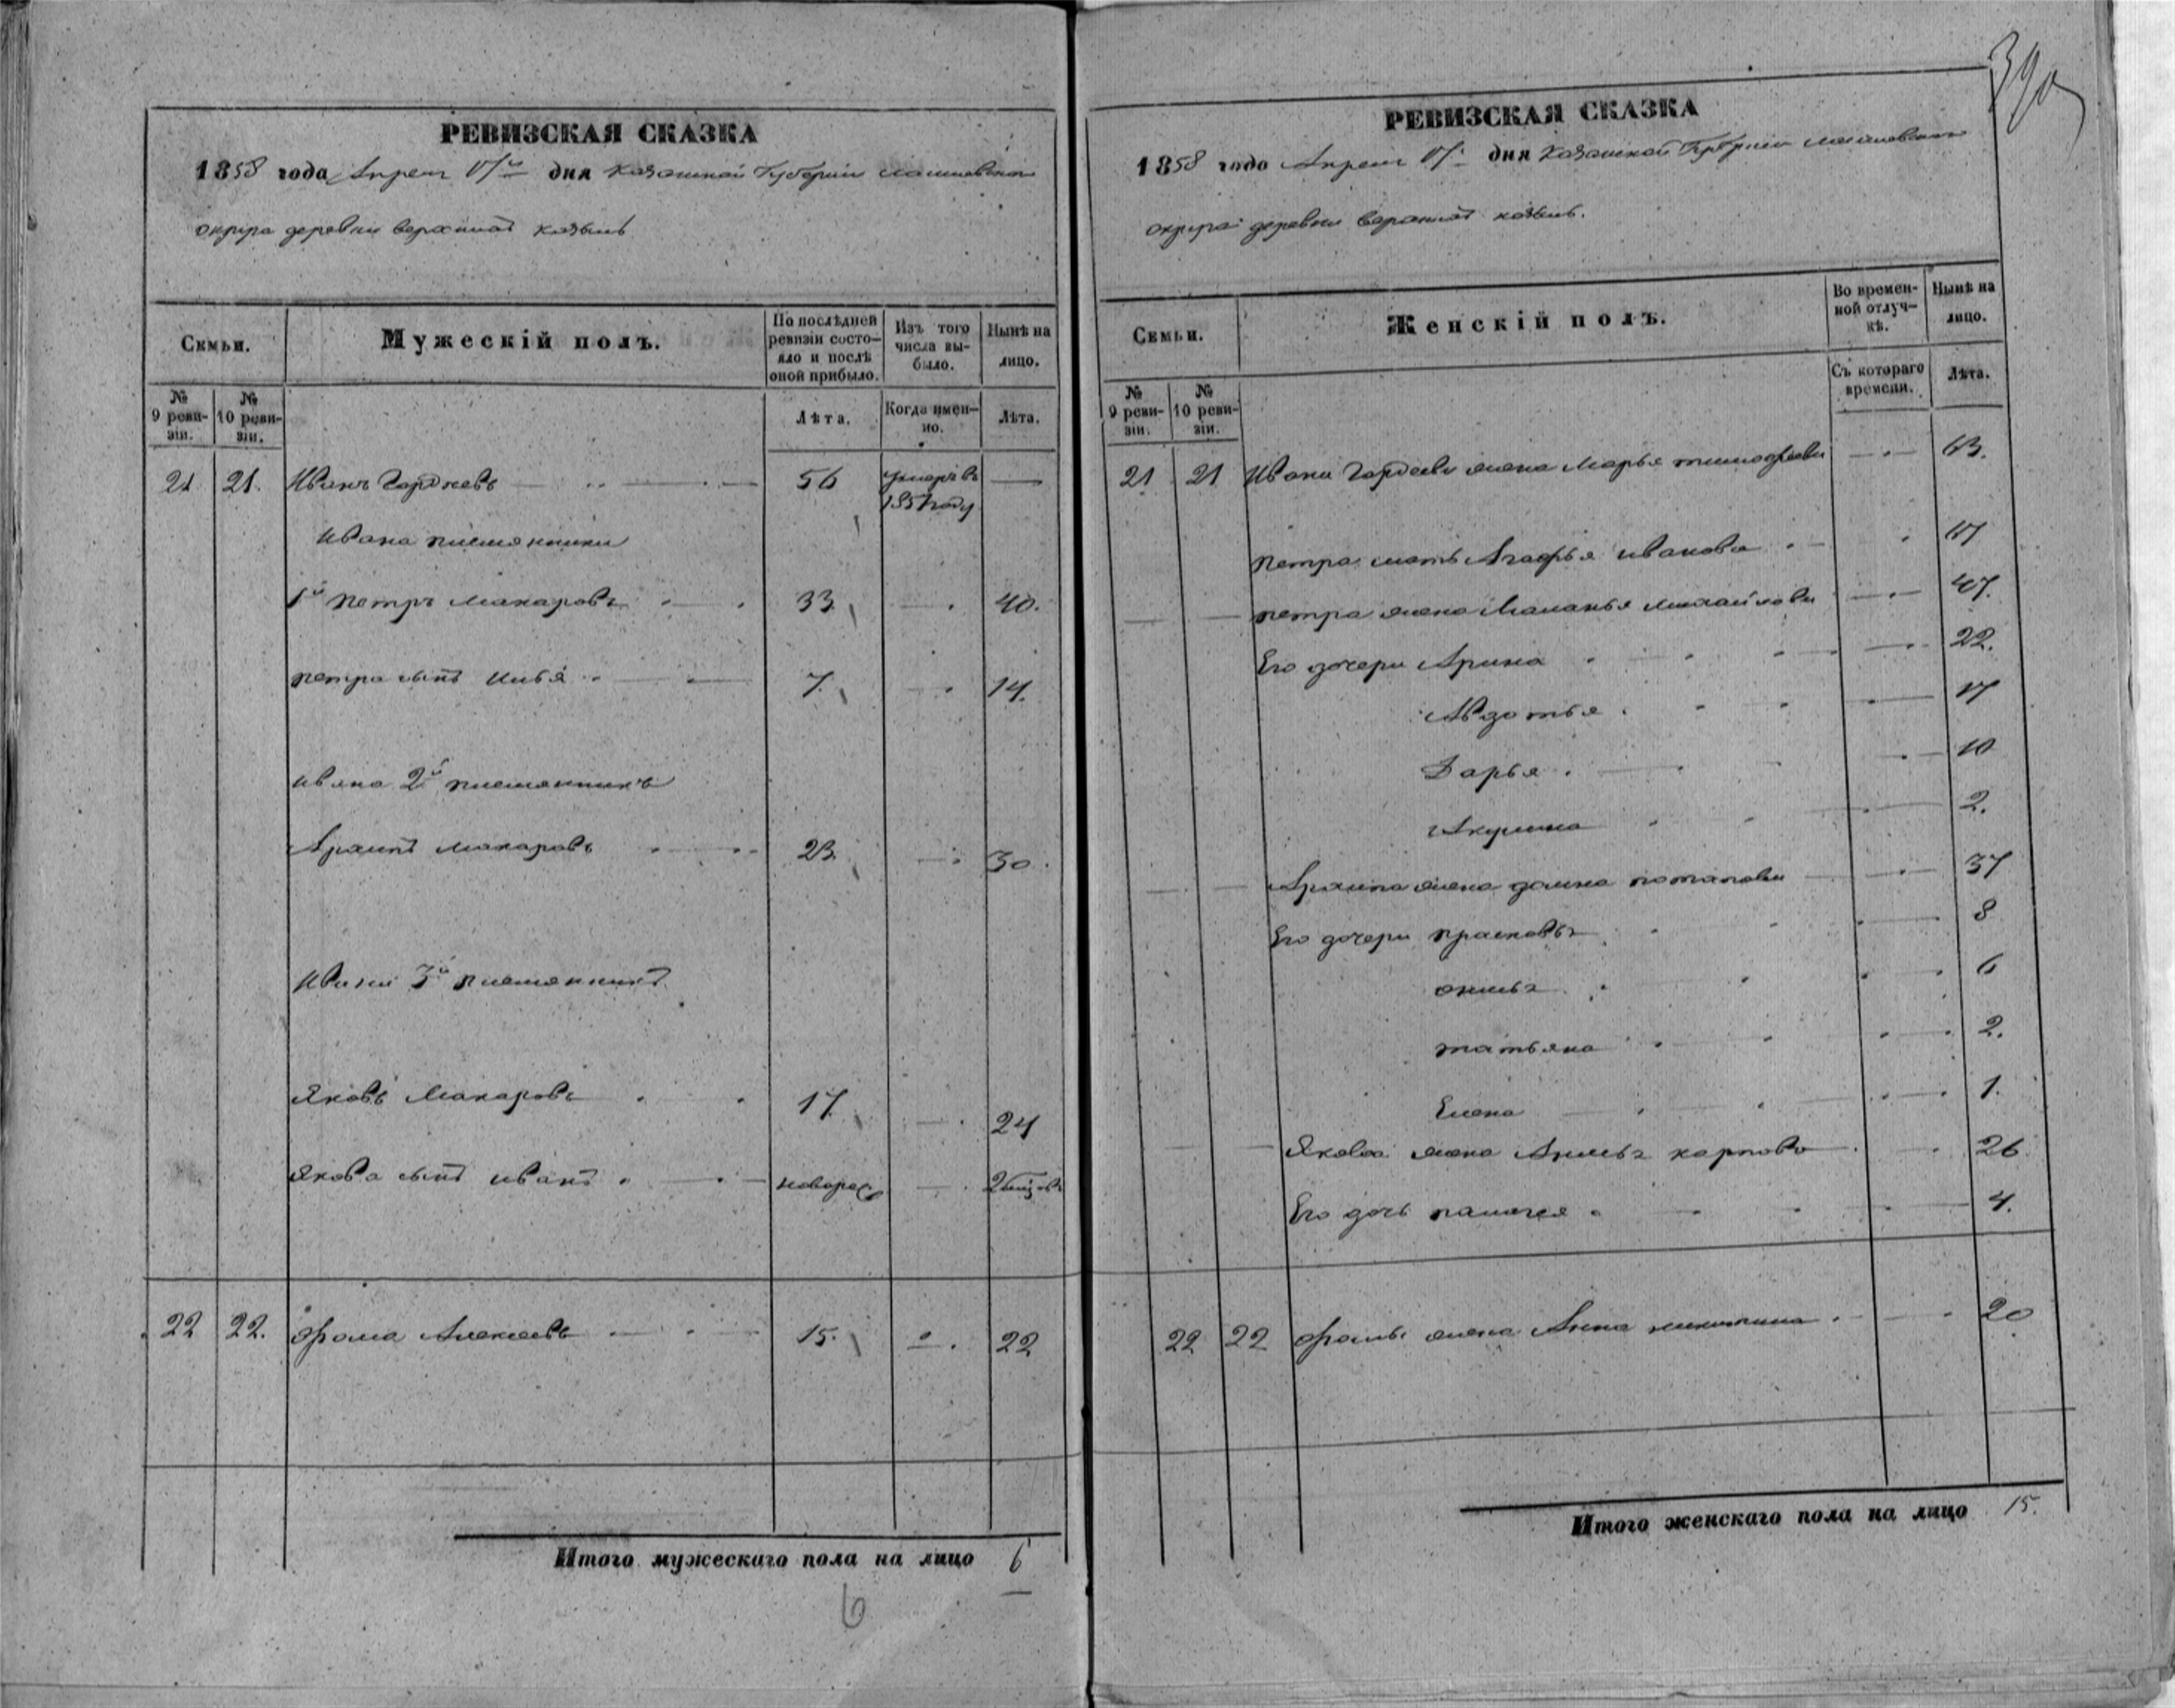 РЕВИЗСКАЯ СКАЗКА
1858 года Апреля дня Казанской Губернии Лаишевскаго
округа деревни верхнихъ
Семьи.
Мужескій полъ.
По послѣдней ревизіи состо-
яло и послѣ
оной прибыло.
Изъ того
числа вы-
было.
Нынѣ на
лицо.
№
9 реви-
зіи.
№
10 реви-
зіи.
Лѣта.
Когда имен-
но.
Лѣта.
21 21. Иванъ Гордѣевъ 56 умеръ въ
1857 году
Ивана племянники
1й петръ макаровъ 33 40.
петра сынъ илья 7. 14.
ивана 2й племянникъ
Архипъ макаровъ 23. 30.
Ивана 3й племянникъ
Яковъ Макаровъ 17. 24
Якова сынъ иванъ новорож
22 22. Фома Алексеевъ 15. 22
Итого мужескаго пола на лицо 6
6
РЕВИЗСКАЯ СКАЗКА
1858 года Апреля дня Казанской Губернии лаишевскаго
округа деревни верхнихъ
Семьи.
Женскій полъ.
Во времен-
ной отлуч-
кѣ.
Нынѣ на
лицо.
№
9 реви-
зіи.
№
10 реви-
зіи.
Съ котораго
времени.
Лѣта.
21 21 Ивана Гордеева жена Марья тимофеева 63.
петра мать Агафья иванова
петра жена Маланья михайлова 47.
Его дочери Арина 22.
Авдотья 17
Дарья 10
Акулина 2.
Архипа жена домна потапова 37
Его дочери прасковья 8
6
татьяна 2.
Елена 1.
Якова жена карпова 26
Его дочь пелагея 4.
22 22 Фомы жена Анна никитина 20
Итого женскаго пола на лицо 15.